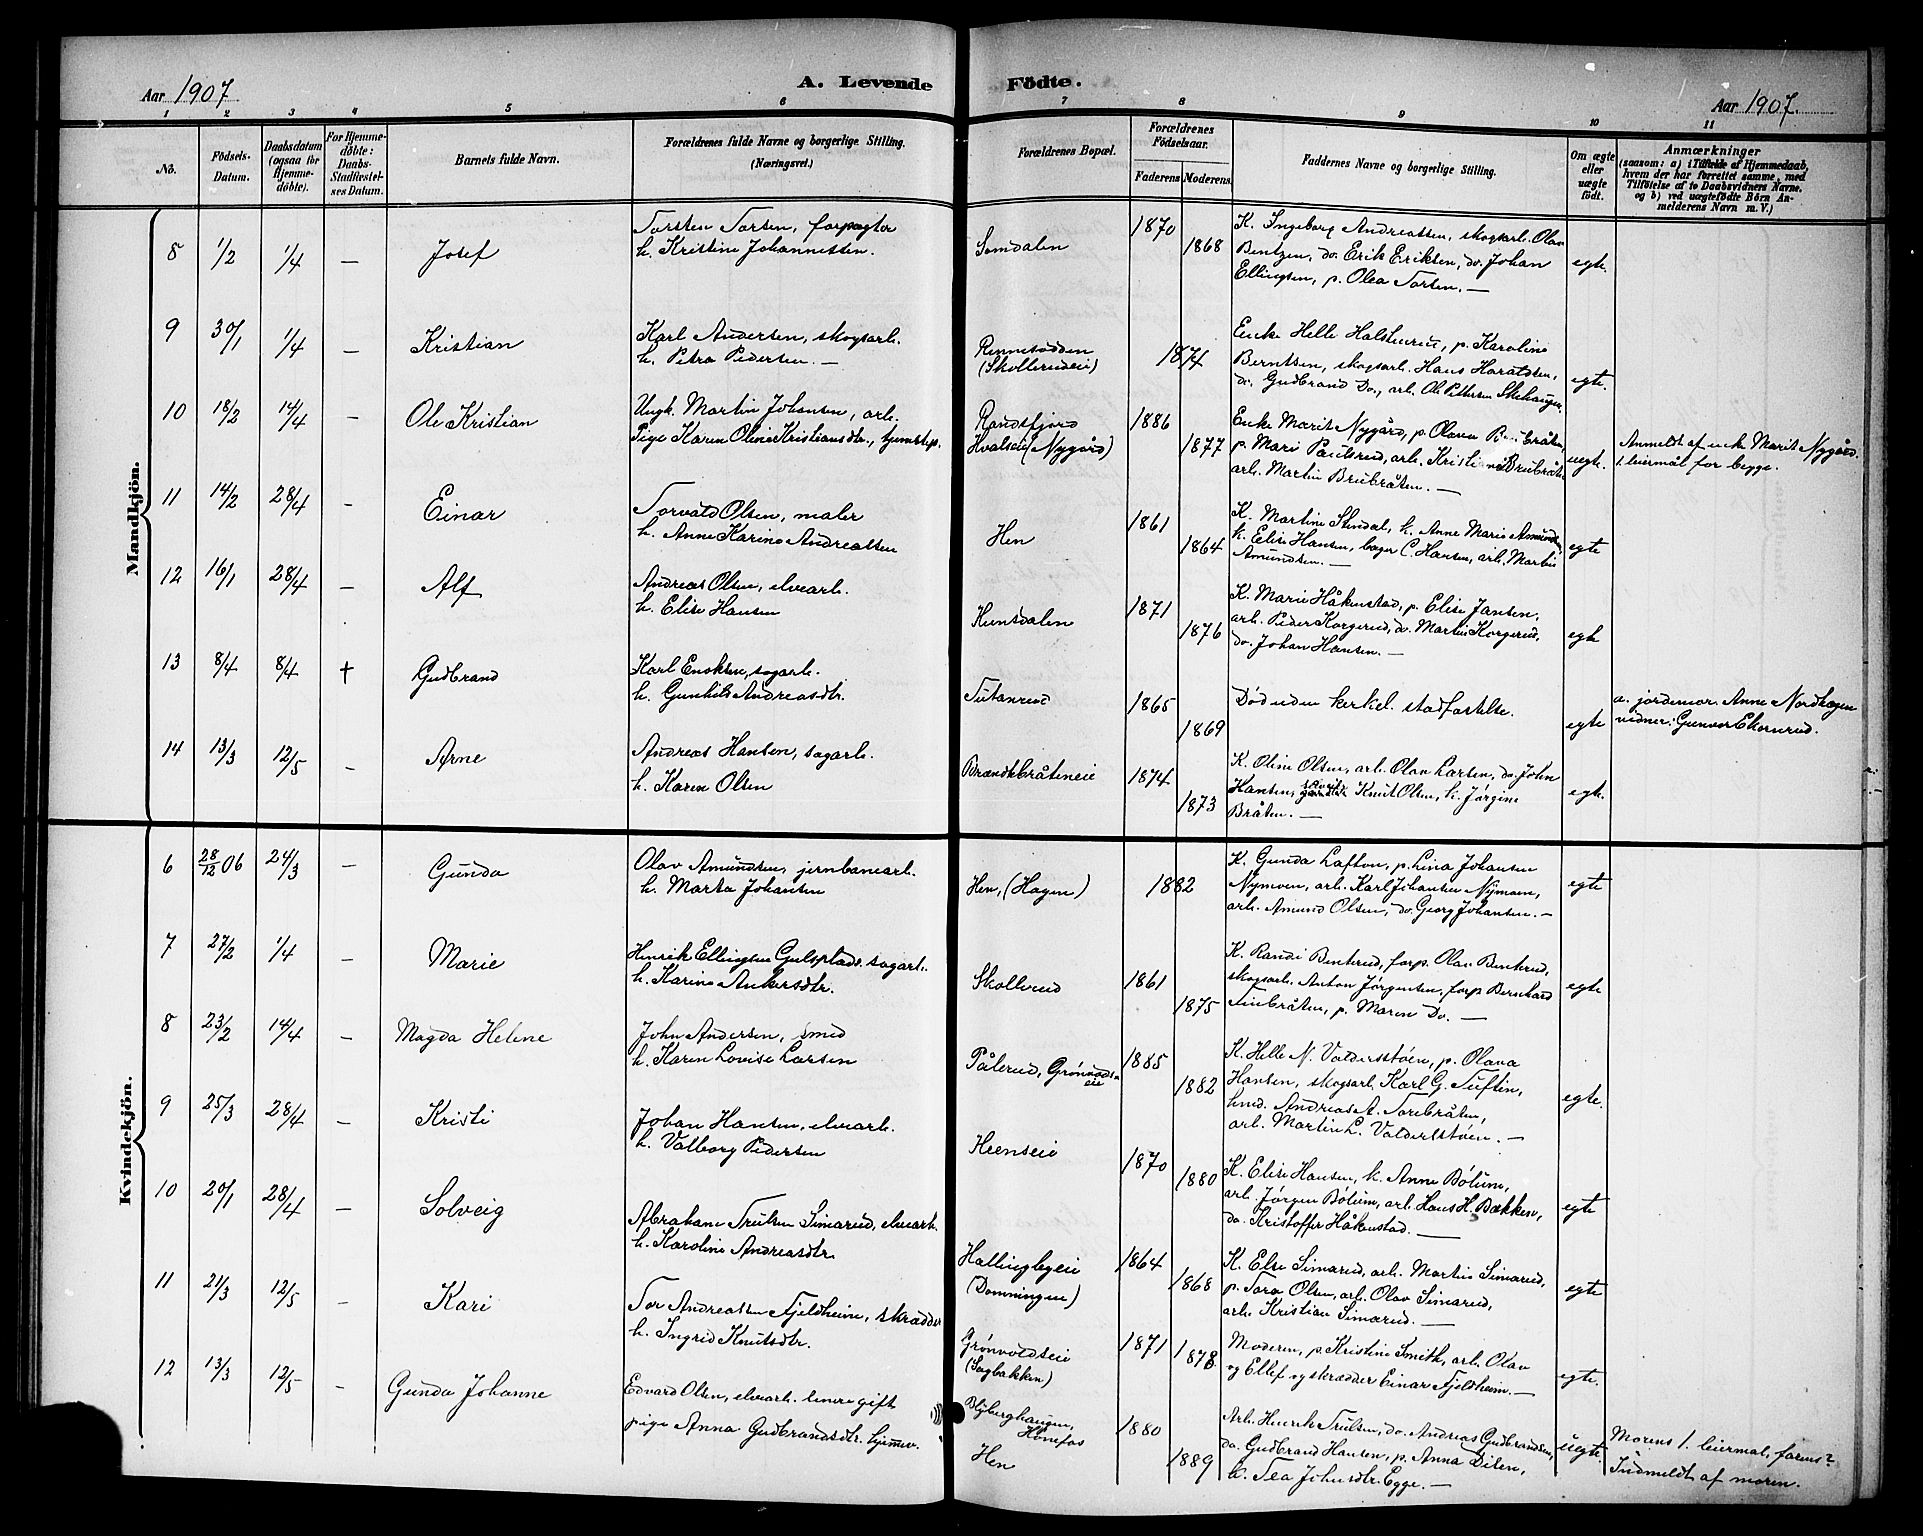 Aar 1907. A. Levende Födte. Aar 1907.
1 2 3 4 5 6 7 8 9 10 11
No. Födsels-Datum. Daabsdatum (ogsaa for Hjemme-døbte). For Hjemme-døbte: Daabs-Stadfæstel-ses Datum. Barnets fulde Navn. Forældrenes fulde Navne og borgerlige Stilling. (Næringsvei.) Forældrenes Bopæl. Forældrenes Födselsaar. Faderens Moderens. Faddernes Navne og borgerlige Stilling. Om ægte eller uægte födt. Anmærkninger (saasom: a) i Tilfælde af Hjemmedaab, hvem der har forrettet samme, med Tilføielse af to Daabsvidners Navne, og b) ved uægtefödte Börn An-melderens Navn m. V.)
Mandkjön.
8 1/2 1/4 — Josef
Torsten Torsen, forpagter
h. Kristine Johannessen.
Somdalen 1870 1868
K. Ingeborg Andreassen, skogsarb. Olav
Bentzen, do. Erik Eriksen, do. Johan
Ellingsen, p. Olea Torsen. —
egte.
9 30/1 1/4 — Kristian
Karl Andersen, skogsarb.
h. Petra Pedersen. —
(Skollerudeie) 1874
Enke Helle Halstenrud, p. Karoline
Berntsen, skogsarb. Hans Haraldsen,
do. Gudbrand Do., arb. Ole Pettersen
egte.
10 18/2 14/4 — Ole Kristian
Ungk. Martin Johansen, arb.
Pige Karen Oline Kristiansdtr.,
Randsfjord
Hvalseie (Nygård) 1886 1877
Enke Marit Nygård, p. Olava Brubråten,
p. Mari Paulsrud, arb. Kristian Brubråten
arb. Martin Brubråten. —
uegte.
Anmeldt af enke Marit Nygård.
1. leiermål for begge.
11 14/2 28/4 — Einar
Torvald Olsen, maler
h. Anne Karine Andreassen
Hen 1861 1864
K. Martine Stendal, k. Anne Marie Amundsen,
k. Elise Hansen, bager C. Hansen, arb. Martin
Amundsen. —
egte
12 16/1 28/4 — Alf
Andreas Olsen, elvearb.
h. Elise Hansen
Hensdalen 1871 1876
K. Marie Håkenstad, p. Elise Jansen,
arb. Peder Korgerud, do. Martin Korgerud,
do. Johan Hansen. —
egte
13 8/4 8/4 † Gudbrand
Karl Enoksen, sagarb.
h. Gunhild Andreasdtr.
Tutanrud 1865 1869
Død uden kirkel. stadfæstelse.
egte
a. jordemor Anne Nordhagen
vidner: Gunvor Ekornrud.
14 13/3 12/5 — Arne
Andreas Hansen, sagarb.
h. Karen Olsen
Brændsbråteneie 1874 1873
K. Oline Olsen, arb. Olav Larsen, do. John
Hansen, Knut Olsen, k. Jørgine
Bråten. —
egte.
Kvindekjön.
6 28/12 06 24/3 — Gunda
Olav Amundsen, jernbanearb.
h. Marta Johansen
Hen, (Hagen) 1882
K. Gunda Lafton, p. Lina Johansen
Nymoen, arb. Karl Johansen Nymoen,
arb. Amund Olsen, do. Georg Johansen. —
egte
7 27/2 1/4 — Marie
Henrik Ellingsen Gulsplads, sagarb.
h. Karine Ankersdtr.
Skollerud 1861 1875
K. Randi Benterud, forp. Olav Benterud,
skogsarb. Anton Jørgensen, forp. Bernhard
Finbråten, p. Maren Do. —
egte
8 23/2 14/4 — Magda Helene
John Andersen, smed
h. Karen Lovise Larsen
Pålerud, Grønvolds-
eie 1885 1882
K. Helle N. Valdersstøen, p. Olava
Hansen, skogsarb. Karl G. Tuftin,
hmd. Andreas A. Torebråten,
arb. Martin L. Valdersstøen. —
egte.
9 25/3 28/4 — Kristi
Johan Hansen, elvearb.
h. Valborg Pedersen
Heenseie 1870 1880
K. Elise Hansen, k. Anne Bølum,
arb. Jørgen Bølum, arb. Hans H. Bakken,
do. Kristoffer Håkenstad. —
egte
10 20/1 28/4 — Solveig
Abraham Trulsen Simarud, elvearb.
h. Karoline Andreasdtr.
Hallingbyeie
(Domningen) 1864 1868
K. Else Simarud, arb. Martin Simarud,
p. Tora Olsen, arb. Olav Simarud,
arb. Kristian Simarud. —
egte
11 21/3 12/5 — Kari
Tor Andreassen Fjeldheim, skrædder
h. Ingrid Knutsdtr.
Grønvoldseie
(Sagbakken) 1871 1878
Moderen, p. Kristine Smith, arb. Olav
og Ellef og skrædder Einar Fjeldheim. —
egte.
12 13/3 12/5 — Gunda Johanne
Edvard Olsen, elvearb. gift
pige Anna Gudbrandsdtr. hjemmev.
Hønefos
Hen 1880 1889
Arb. Henrik Trulsen, do. Andreas Gudbrandsen,
do. Gudbrand Hansen, p. Anna Dilen,
k. Tea Johnsdtr. Egge. —
uegte.
Morens 1. leiermål, farens?
Indmeldt af moren.